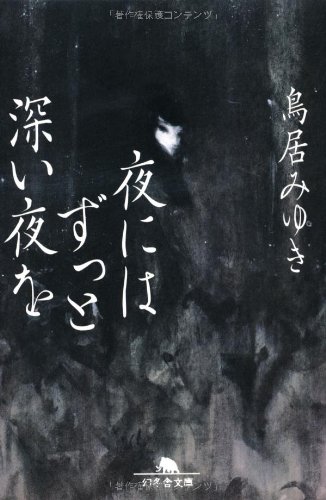 「著作権保護コンテンツ」
鳥居みゆき
夜には
ずっと
深い夜を
幻冬舎文庫
「著作権保護コンテンツ」